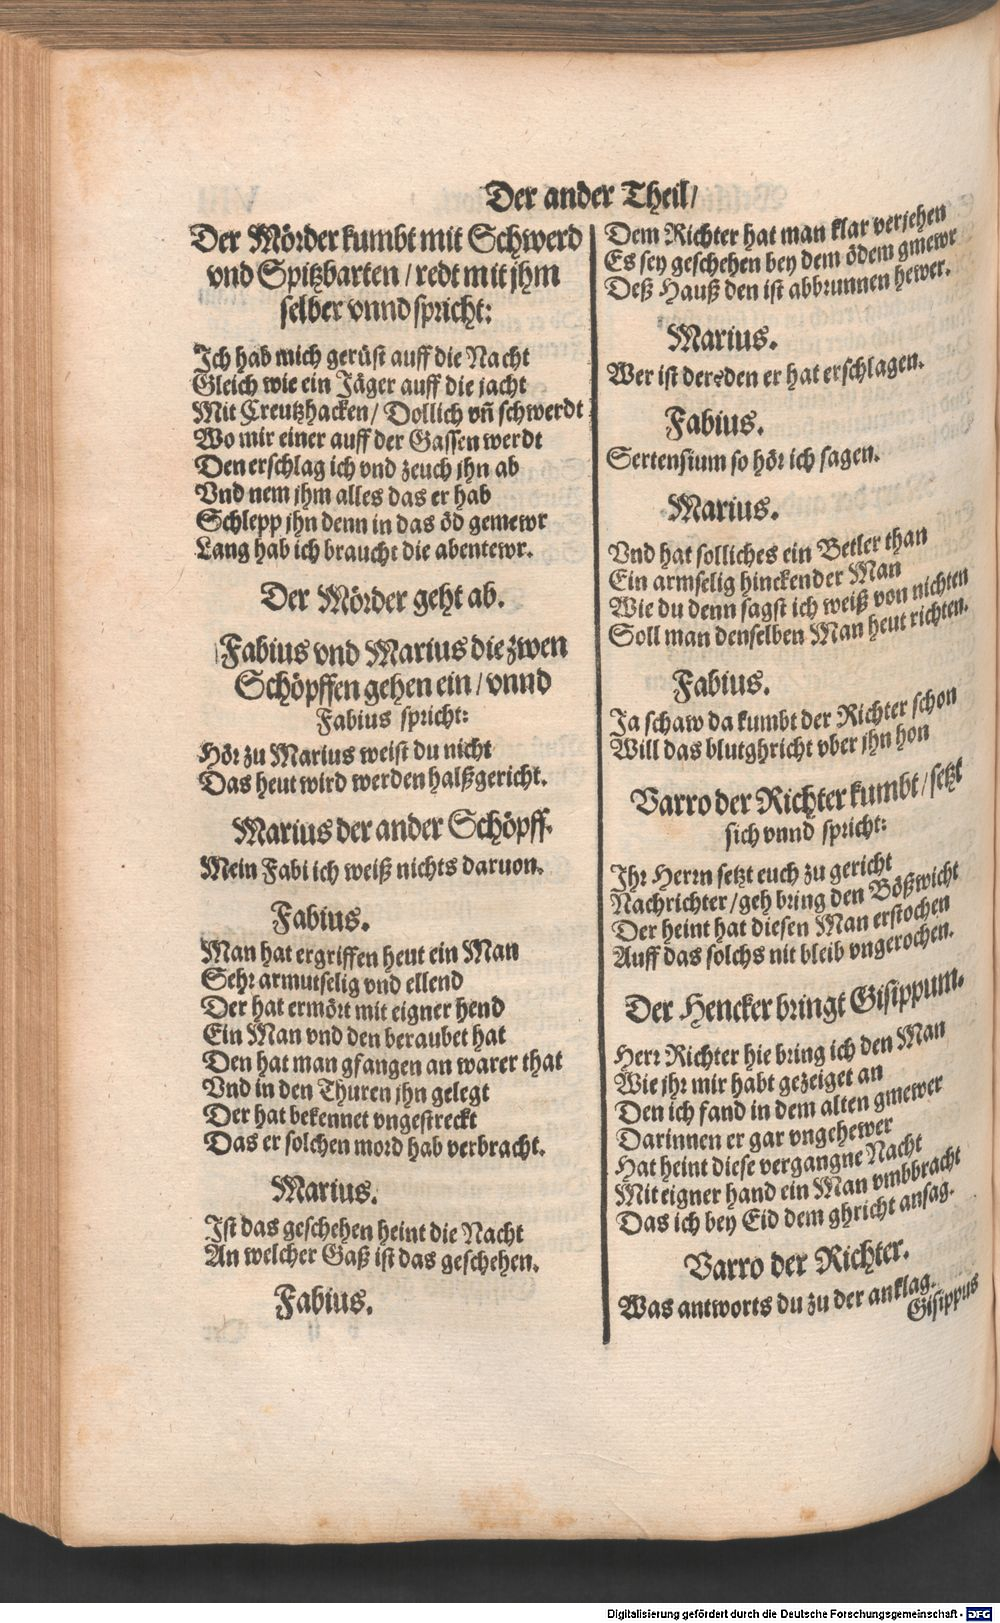 Der ander Theil/
Der Mörder kumbt mit Schwerd
vnd Spitzbarten / redt mit jhm
selber vnnd spricht:
Ich hab mich gerüst auff die Nacht
Gleich wie ein Jäger auff die jacht
Mit Creutzhacken/ Dollich vñ schwerdt
Wo mir einer auff der Gassen werdt
Den erschlag ich vnd zeuch jhn ab
Vnd nem jhm alles das er hab
Schlepp jhn denn in das öd gemewr
Lang hab ich braucht die abentewr.
Der Mörder geht ab.
Fabius vnd Marius die zwen
Schöpffen gehen ein / vnnd
Fabius spricht:
Hör zu Marius weist du nicht
Das heut wird werden halßgericht.
Marius der ander Schöpff.
Mein Fabi ich weiß nichts daruon.
Fabius.
Man hat ergriffen heut ein Man
Sehr armutselig vnd ellend
Der hat ermört mit eigner hend
Ein Man vnd den beraubet hat
Den hat man gfangen an warer that
Vnd in den Thuren jhn gelegt
Der hat bekennet vngestreckt
Das er solchen mord hab verbracht.
Marius.
Ist das geschehen heint die Nacht
An welcher Gaß ist das geschehen.
Fabius.
Dem Richter hat man klar verjehen
Es sey geschehen bey dem ödem gmewr
Deß Hauß den ist abbrunnen hewer.
Marius.
Wer ist der? den er hat erschlagen.
Fabius.
Sertensium so hör ich sagen.
Marius.
Vnd hat solliches ein Betler than
Ein armselig hinckender Man
Wie du denn sagst ich weiß von nichten
Soll man denselben Man heut richten.
Fabius.
Ja schaw da kumbt der Richter schon
Will das blutghricht vber jhn hon
Varro der Richter kumbt / setzt
sich vnnd spricht:
Ihr Herrn setzt euch zu gericht
Nachrichter / geh bring den Bößwicht
Der heint hat diesen Man erstochen
Auff das solchs nit bleib vngerochen.
Der Hencker bringt Gisippum.
Herr Richter hie bring ich den Man
Wie jhr mir habt gezeiget an
Den ich fand in dem alten gmewer
Darinnen er gar vngehewer
Hat heint diese vergangne Nacht
Mit eigner hand ein Man vmbbracht
Das ich bey Eid dem ghricht ansag.
Varro der Richter.
Was antworts du zu der anklag.
Gisippus
Digitalisierung gefördert durch die Deutsche Forschungsgemeinschaft - DFG